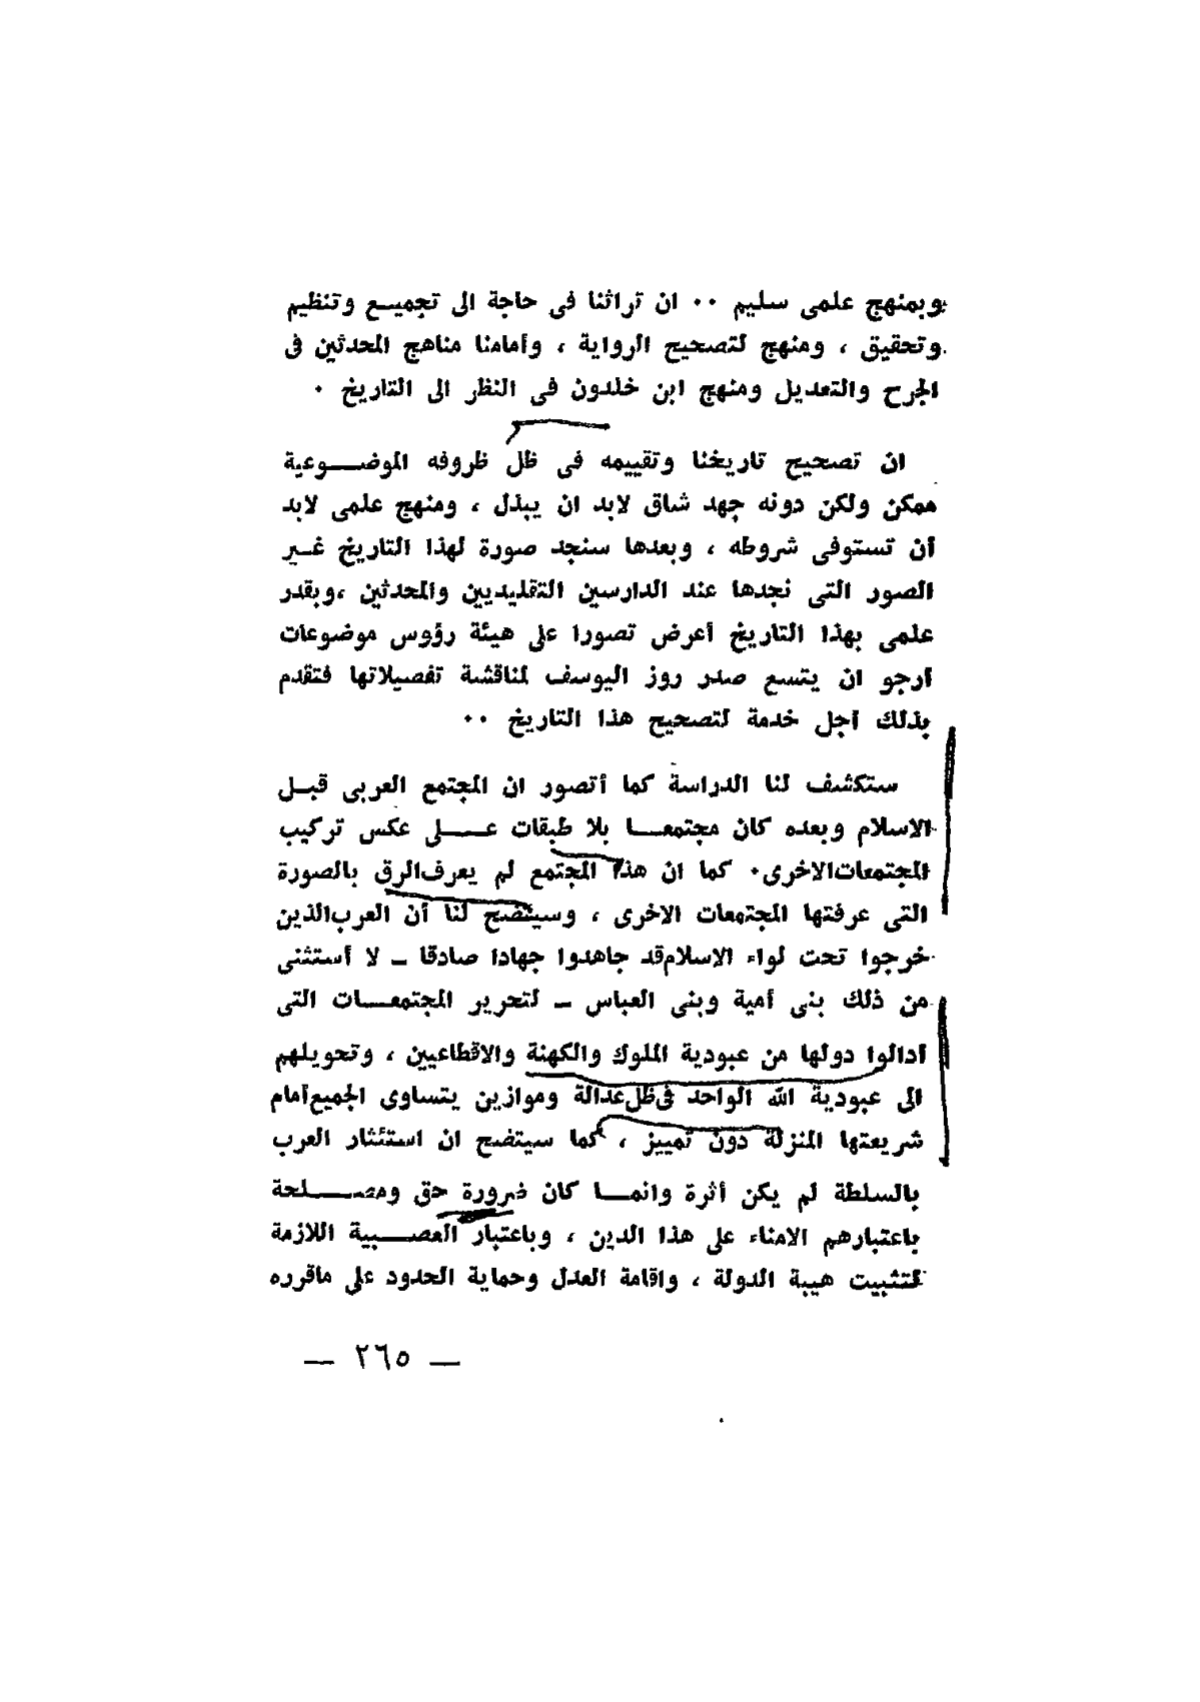 وبمنهج علمى سليم ٠٠ ان تراثنا فى حاجة الى تجميـع وتنظيم
وتحقيق ، ومنهج لتصحيح الرواية ، وأمامنا مناهج المحدثين فى
الجرح والتعديل ومنهج ابن خلدون فى النظر الى التاريخ ٠
ان تصحيح تاريخنا وتقييمه فى ظل ظروفه الموضـــوعية
ممكن ولكن دونه جهد شاق لابد ان يبذل ، ومنهج علمى لابد
أن تستوفى شروطه ، وبعدها سنجد صورة لهذا التاريخ غـير
الصور التى نجدها عند الدارسين التقليديين والمحدثين ،وبقدر
علمى بهذا التاريخ أعرض تصورا على هيئة رؤوس موضوعات
أرجو ان يتسع صدر روز اليوسف لمناقشة تفصيلاتها فتقدم
بذلك أجل خدمة لتصحيح هذا التاريخ ٠٠
ستكشف لنا الدراسة كما أتصور ان المجتمع العربى قبـل
الاسلام وبعده كان مجتمعـــا بلا طبقات عــــلى عكس تركيب
المجتمعات الاخرى٠ كما ان هذا المجتمع لم يعرف الرق بالصورة
التى عرفتها المجتمعات الاخرى ، وسيتضح لنا أن العرب الذين
خرجوا تحت لواء الاسلام قد جاهدوا جهادا صادقا ـ لا أستثنى
من ذلك بنى أمية وبنى العباس ـ لتحرير المجتمعـــات التى
أدالوا دولها من عبودية الملوك والكهنة والاقطاعيين ، وتحويلهم
الى عبودية الله الواحد فى ظل عدالة وموازين يتساوى الجميع أمام
شريعتها المنزلة دون تمييز ، كما سيتضح ان استئثار العرب
بالسلطة لم يكن أثرة وانمـــا كان ضرورة حق ومصـــــلحة
باعتبارهم الامناء على هذا الدين ، وباعتبار العصـــبية اللازمة
لتثبيت هيبة الدولة ، واقامة العدل وحماية الحدود على ماقرره
— ٢٦٥ —